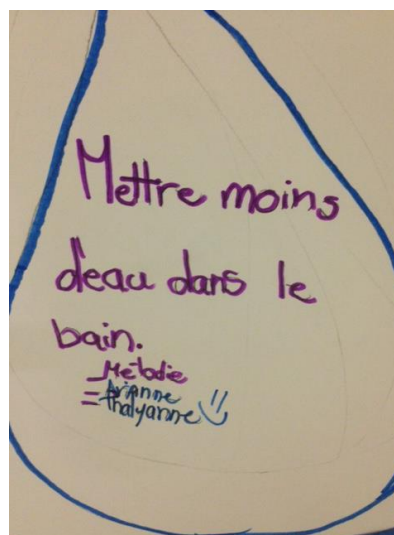 Mettre moins
d'eau dans le
bain.
_Mélodie
=Arianne
thalyanne